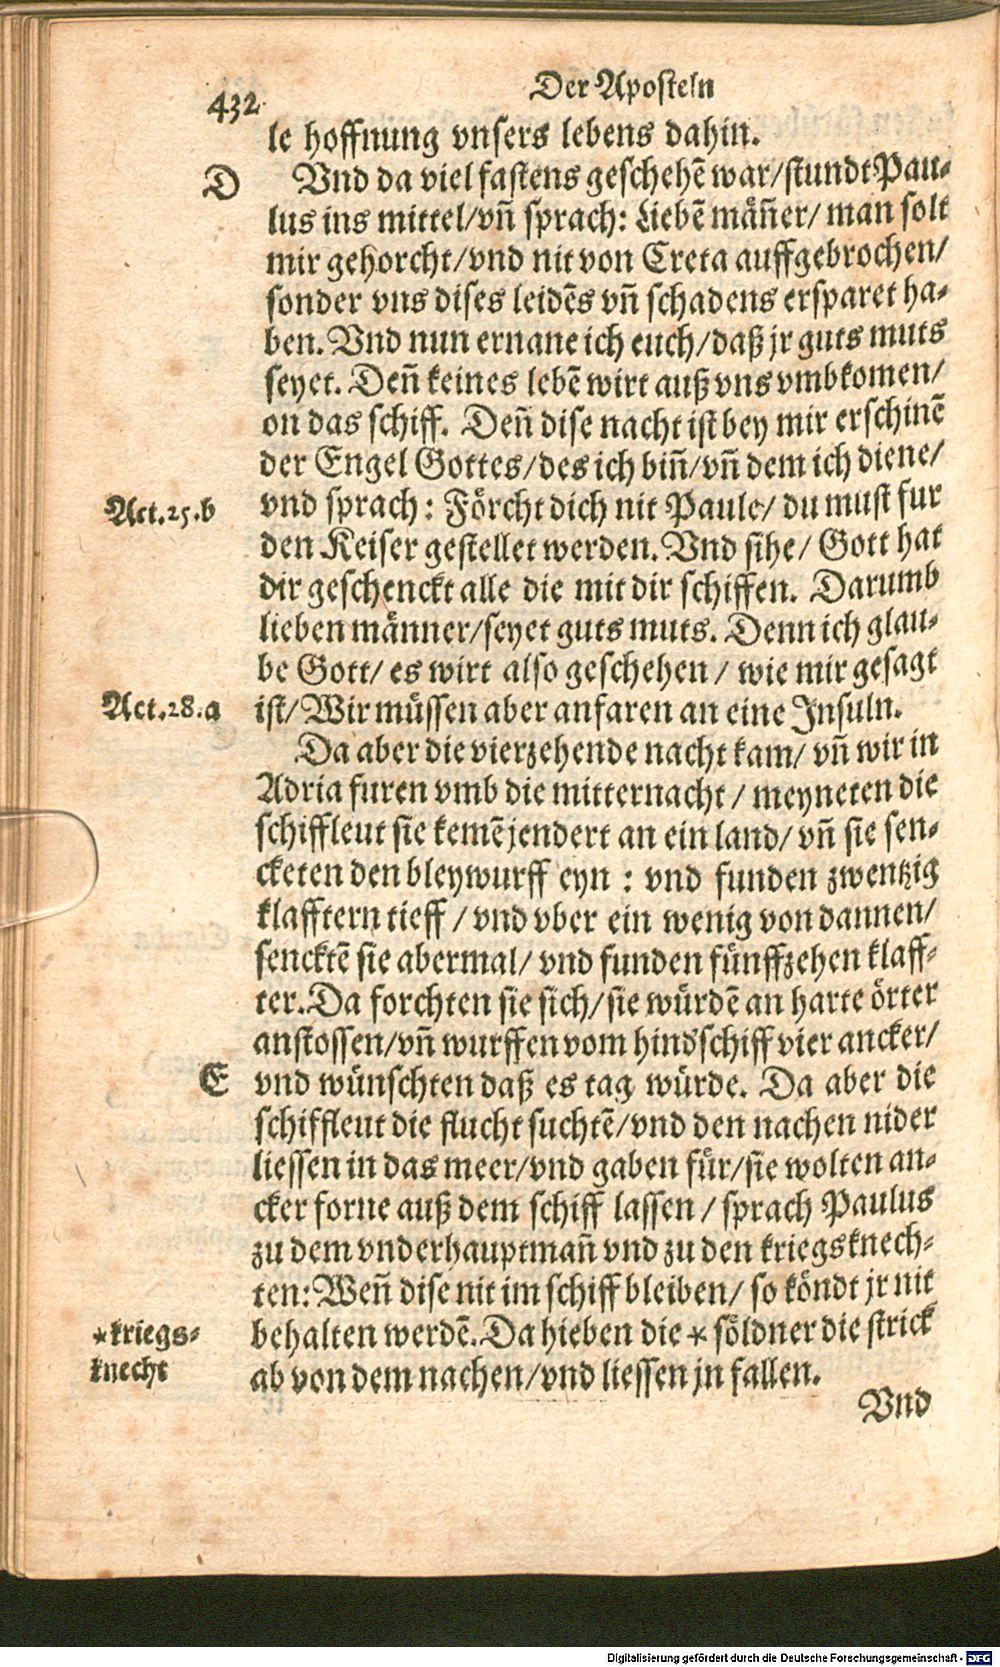 432
Der Aposteln
le hoffnung vnsers lebens dahin.
D
Vnd da viel fastens geschehẽ war/stundt Pau-
lus ins mittel/vñ sprach: Liebẽ mäñer/ man solt
mir gehorcht/vnd nit von Creta auffgebrochen/
sonder vns dises leidẽs vñ schadens ersparet ha-
ben. Vnd nun ernane ich euch/daß jr guts muts
seyet. Deñ keines lebẽ wirt auß vns vmbkomen/
on das schiff. Deñ dise nacht ist bey mir erschinẽ
der Engel Gottes/des ich biñ/vñ dem ich diene/
Act.25.b
vnd sprach: Förcht dich nit Paule/ du must fur
den Keiser gestellet werden. Vnd sihe/ Gott hat
dir geschenckt alle die mit dir schiffen. Darumb
lieben männer/seyet guts muts. Denn ich glau-
be Gott/ es wirt also geschehen / wie mir gesagt
Act.28.a
ist/ Wir müssen aber anfaren an eine Insuln.
Da aber die vierzehende nacht kam/ vñ wir in
Adria furen vmb die mitternacht / meyneten die
schiffleut sie kemẽ jendert an ein land/ vñ sie sen-
cketen den bleywurff eyn : vnd funden zwentzig
klafftern tieff / vnd vber ein wenig von dannen/
sencktẽ sie abermal/ vnd funden fünffzehen klaff-
ter. Da forchten sie sich/ sie würdẽ an harte örter
anstossen/vñ wurffen vom hindschiff vier ancker/
E
vnd wünschten daß es tag würde. Da aber die
schiffleut die flucht suchtẽ/vnd den nachen nider
liessen in das meer/vnd gaben für/sie wolten an-
cker forne auß dem schiff lassen / sprach Paulus
zu dem vnderhauptmañ vnd zu den kriegsknech-
ten: Weñ dise nit im schiff bleiben/ so köndt jr nit
*kriegs-
knecht
behalten werdẽ. Da hieben die * söldner die strick
ab von dem nachen/vnd liessen jn fallen.
Vnd
Digitalisierung gefördert durch die Deutsche Forschungsgemeinschaft - DFG